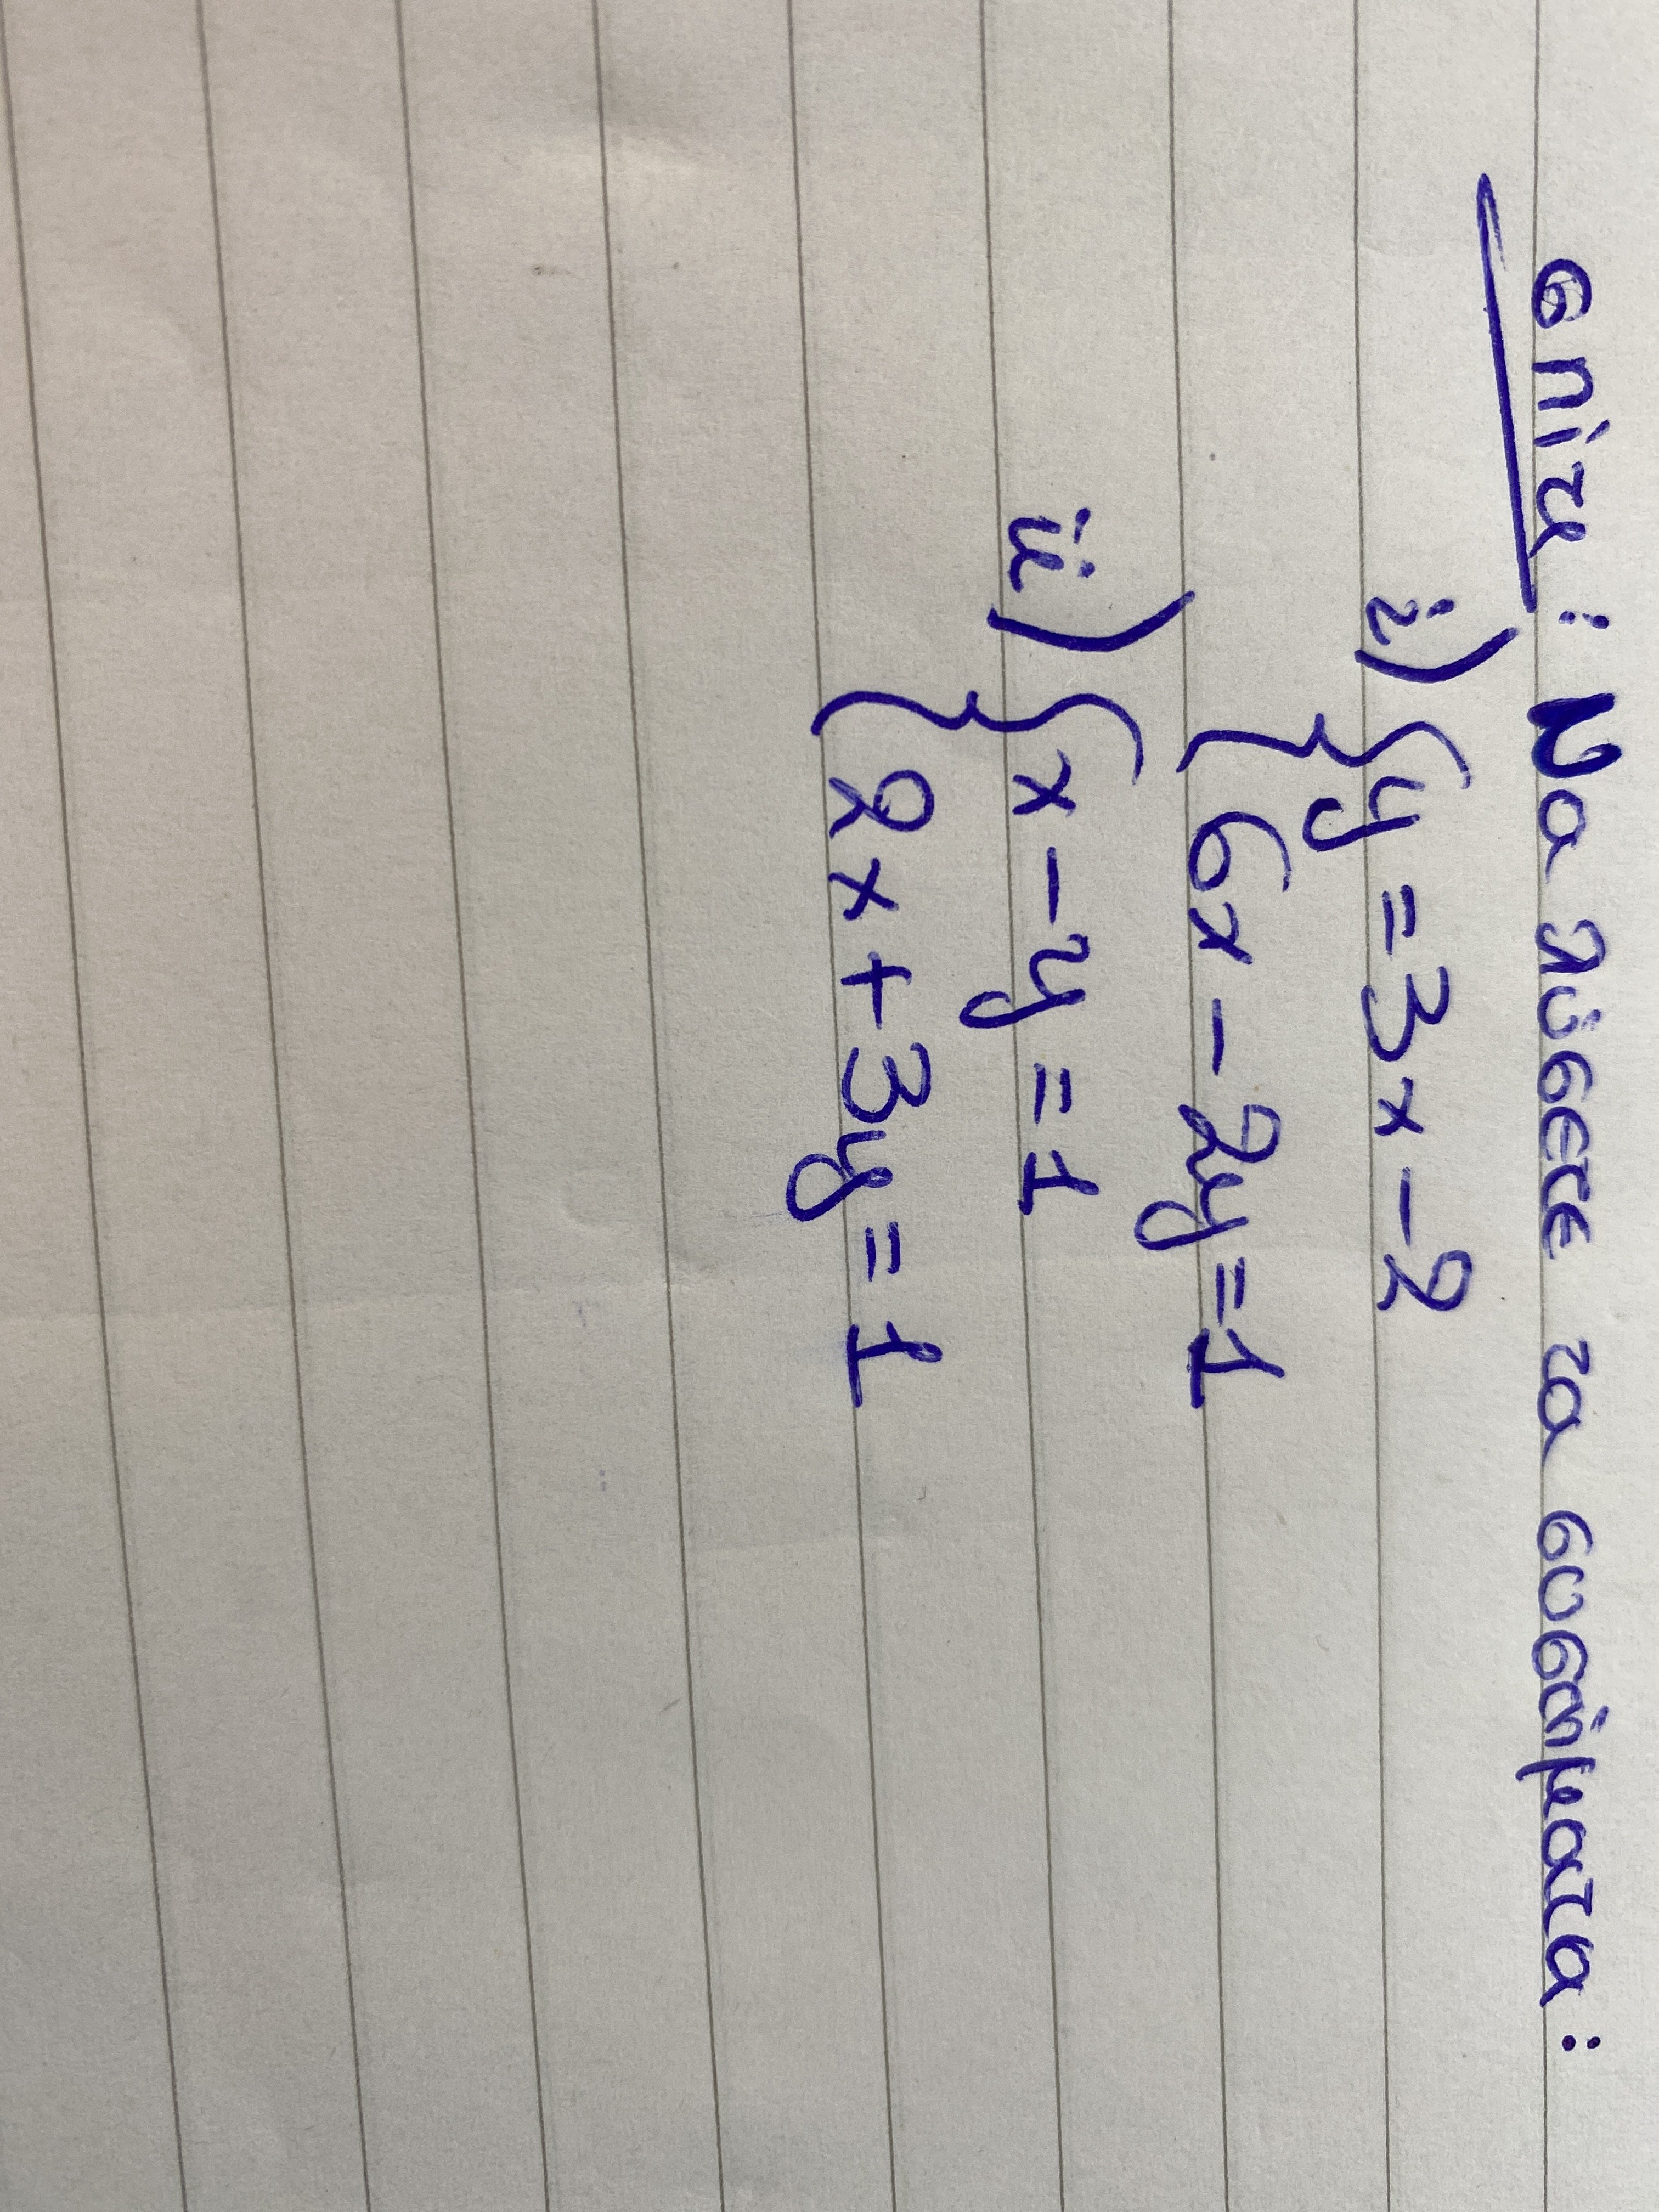 σπίτι: Να λύσετε τα συστήματα:
i) { y = 3x - 2
{ 6x - 2y = 1
ii) { x - y = 1
{ 2x + 3y = 1